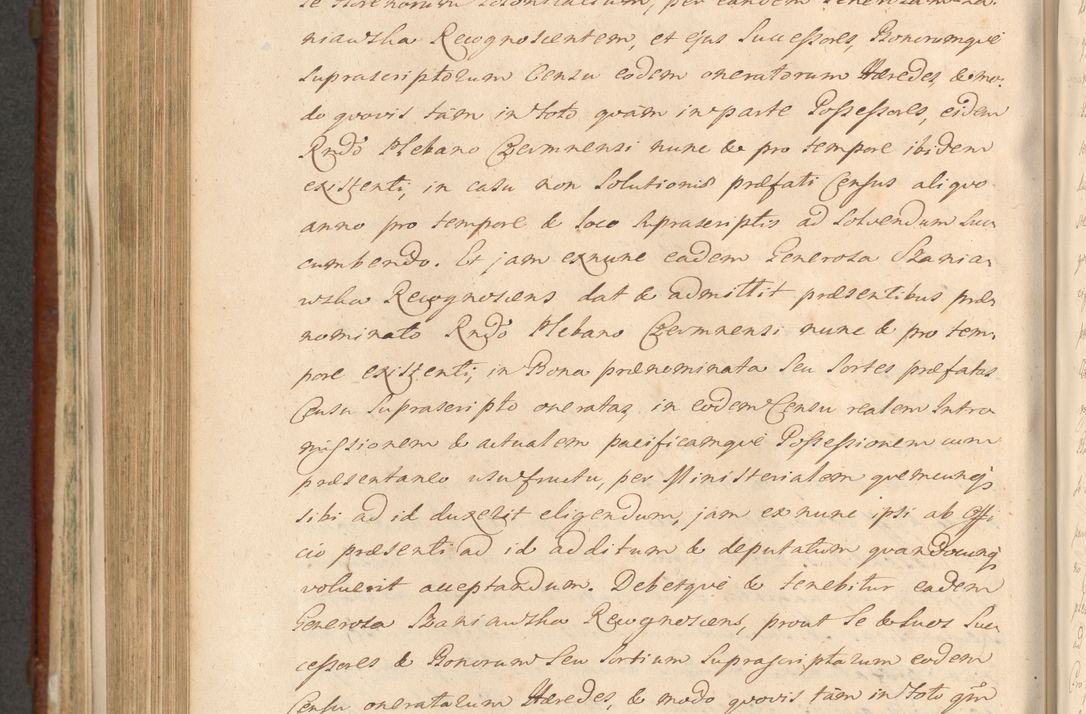 niawska Recognoscentem, et ejus Successores, Bonorumque
suprascriptorum Censu eodem oneratorum Hæredes, & mo-
do quovis tàm in toto quàm in parte Possessores, eidem
Rndo Plebano Czermnensi nunc & pro tempore ibidem
existenti, in casu non solutionis præfati Census aliquo
anno pro tempore & loco supra scriptis ad solvendum suc-
cumbendo. Et jam exnunc eadem Generosa Szania-
wska Recognoscens dat & admittit præsentibus præ-
nominato Rndo Plebano Czermnensi nunc & pro tem-
pore existenti, in Bona prænominata seu Sortes præfatas
Censu suprascripto oneratas, in eodem Censu realem Intro-
missionem & actualem pacificamque Possessionem cum
præsentaneo usufructu, per Ministerialem quemcunq
sibi ad id duxerit eligendum, jam exnunc ipsi ab Offi-
cio præsenti ad id additum & deputatum quandocunq
voluerit acceptandum. Debetque & tenebitur eadem
Generosa Szaniawska Recognoscens, prout se & suos Suc-
cessores & Bonorum seu Sortium suprascriptarum eodem
Censu oneratarum Hæredes, & modo quovis tàm in toto qm